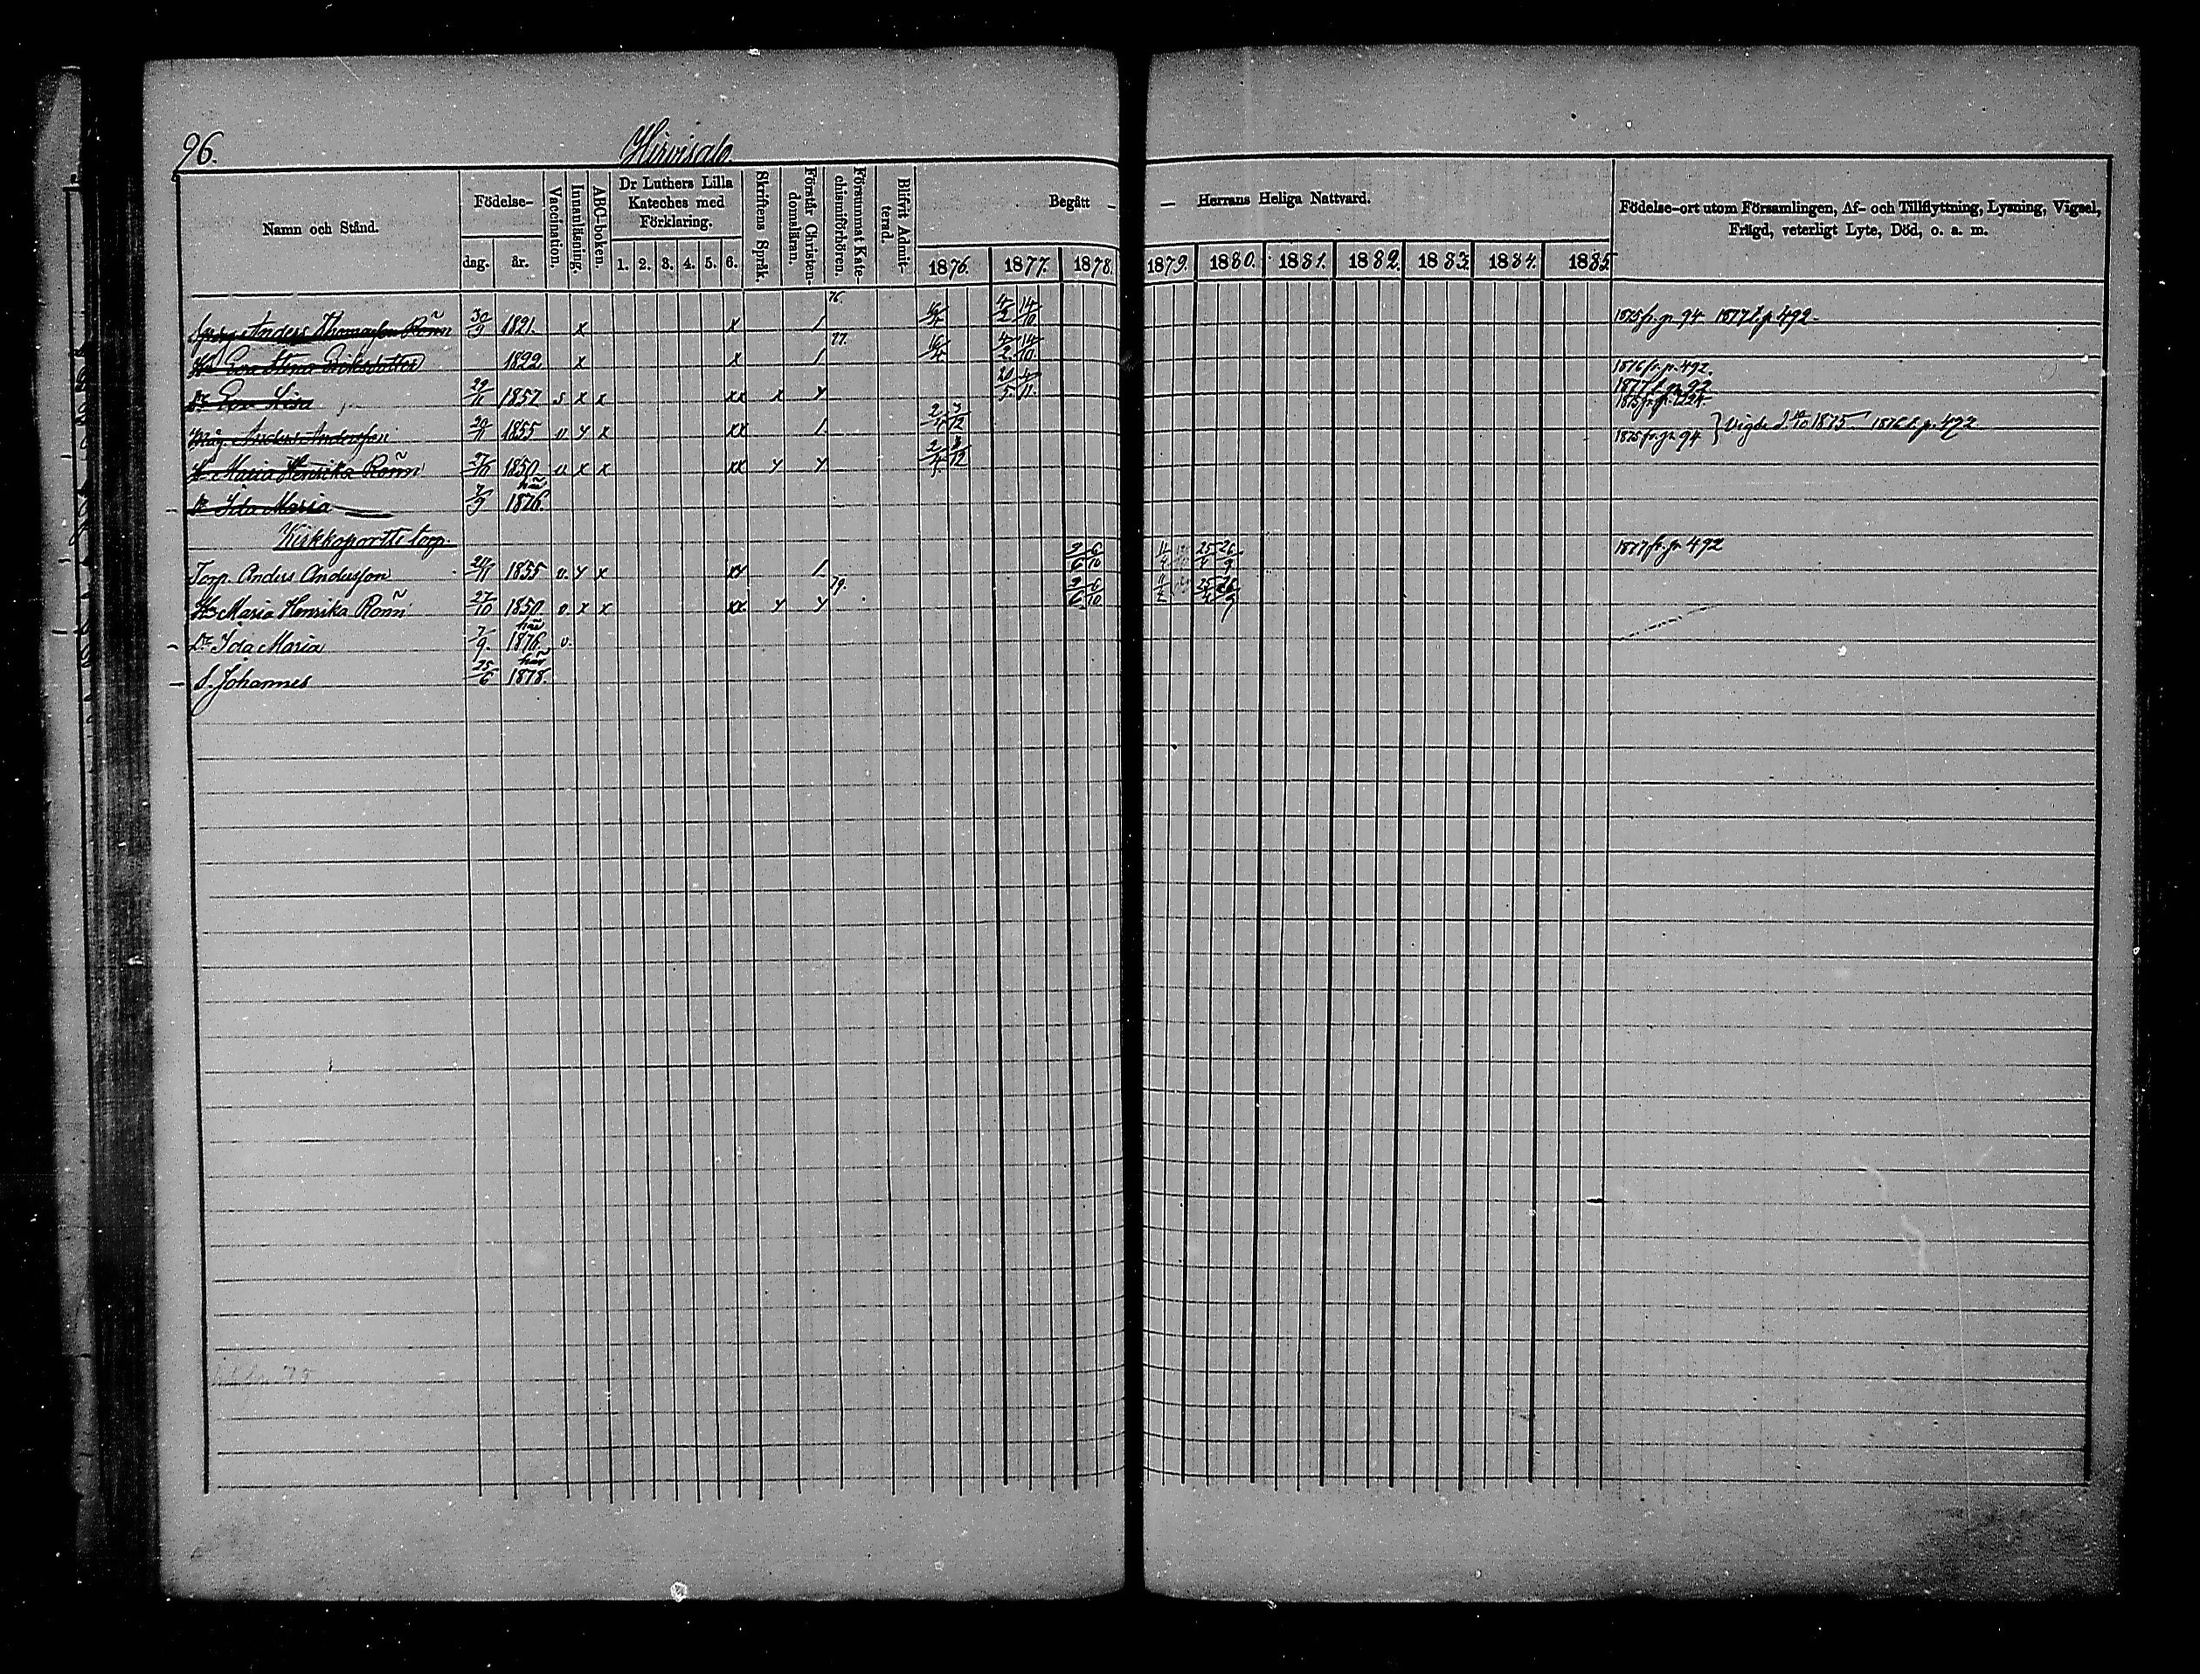 96.
Hirvisalo
Namn och Stånd.
Födelse-
dag. år.
Vaccination.
Innanläsning.
ABC-boken.
Dr Luthers Lilla Kateches med Förklaring.
1. 2. 3. 4. 5. 6.
Skriftens Språk.
Förstår Christen-domsläran.
Försummat Kate-chismiförhören.
Blifvit Admit-terad.
Begått — — Herrans Heliga Nattvard.
1876. 1877. 1878. 1879. 1880. 1881. 1882. 1883. 1884. 1885.
Födelse-ort utom Församlingen, Af- och Tillflyttning, Lysning, Vigsel, Frägd, veterligt Lyte, Död, o. a. m.
76.
Anders Thomasson Ronni 30/9 1821. x x 1 4/2 14/10 1875 fr. p. 94 1877 t. p. 492
77.
Hu Eva Stina Eriksdotter 1822 x x 1 4/2 14/10
Dr Eva Lisa 1857 s x x xx x y 1876 fr. p. 492.
1877 t. p. 92
Måg. Anders Andersson 1855 v. y x xx 1 2/4 3/12 Vigde d. 1875 1876 t. p. 492
Hu Maria Henrika Ronni 27/10 1850 v x x xx y y 2/4 3/12 1875 fr. p. 94
här
Dr Ida Maria 7/9 1876
Kirkkoportti torp.
Torp. Anders Andersson 1855 v. y x xx 1 9/6 6/10 25/4 26/9 1877 fr. p. 492
79.
Hu Maria Henrika Ronni 27/10 1850 v x x xx y y 9/6 6/10 25/4 26/9
här
Dr Ida Maria 7/9. 1876 v.
här
S. Johannes 25/6 1878.